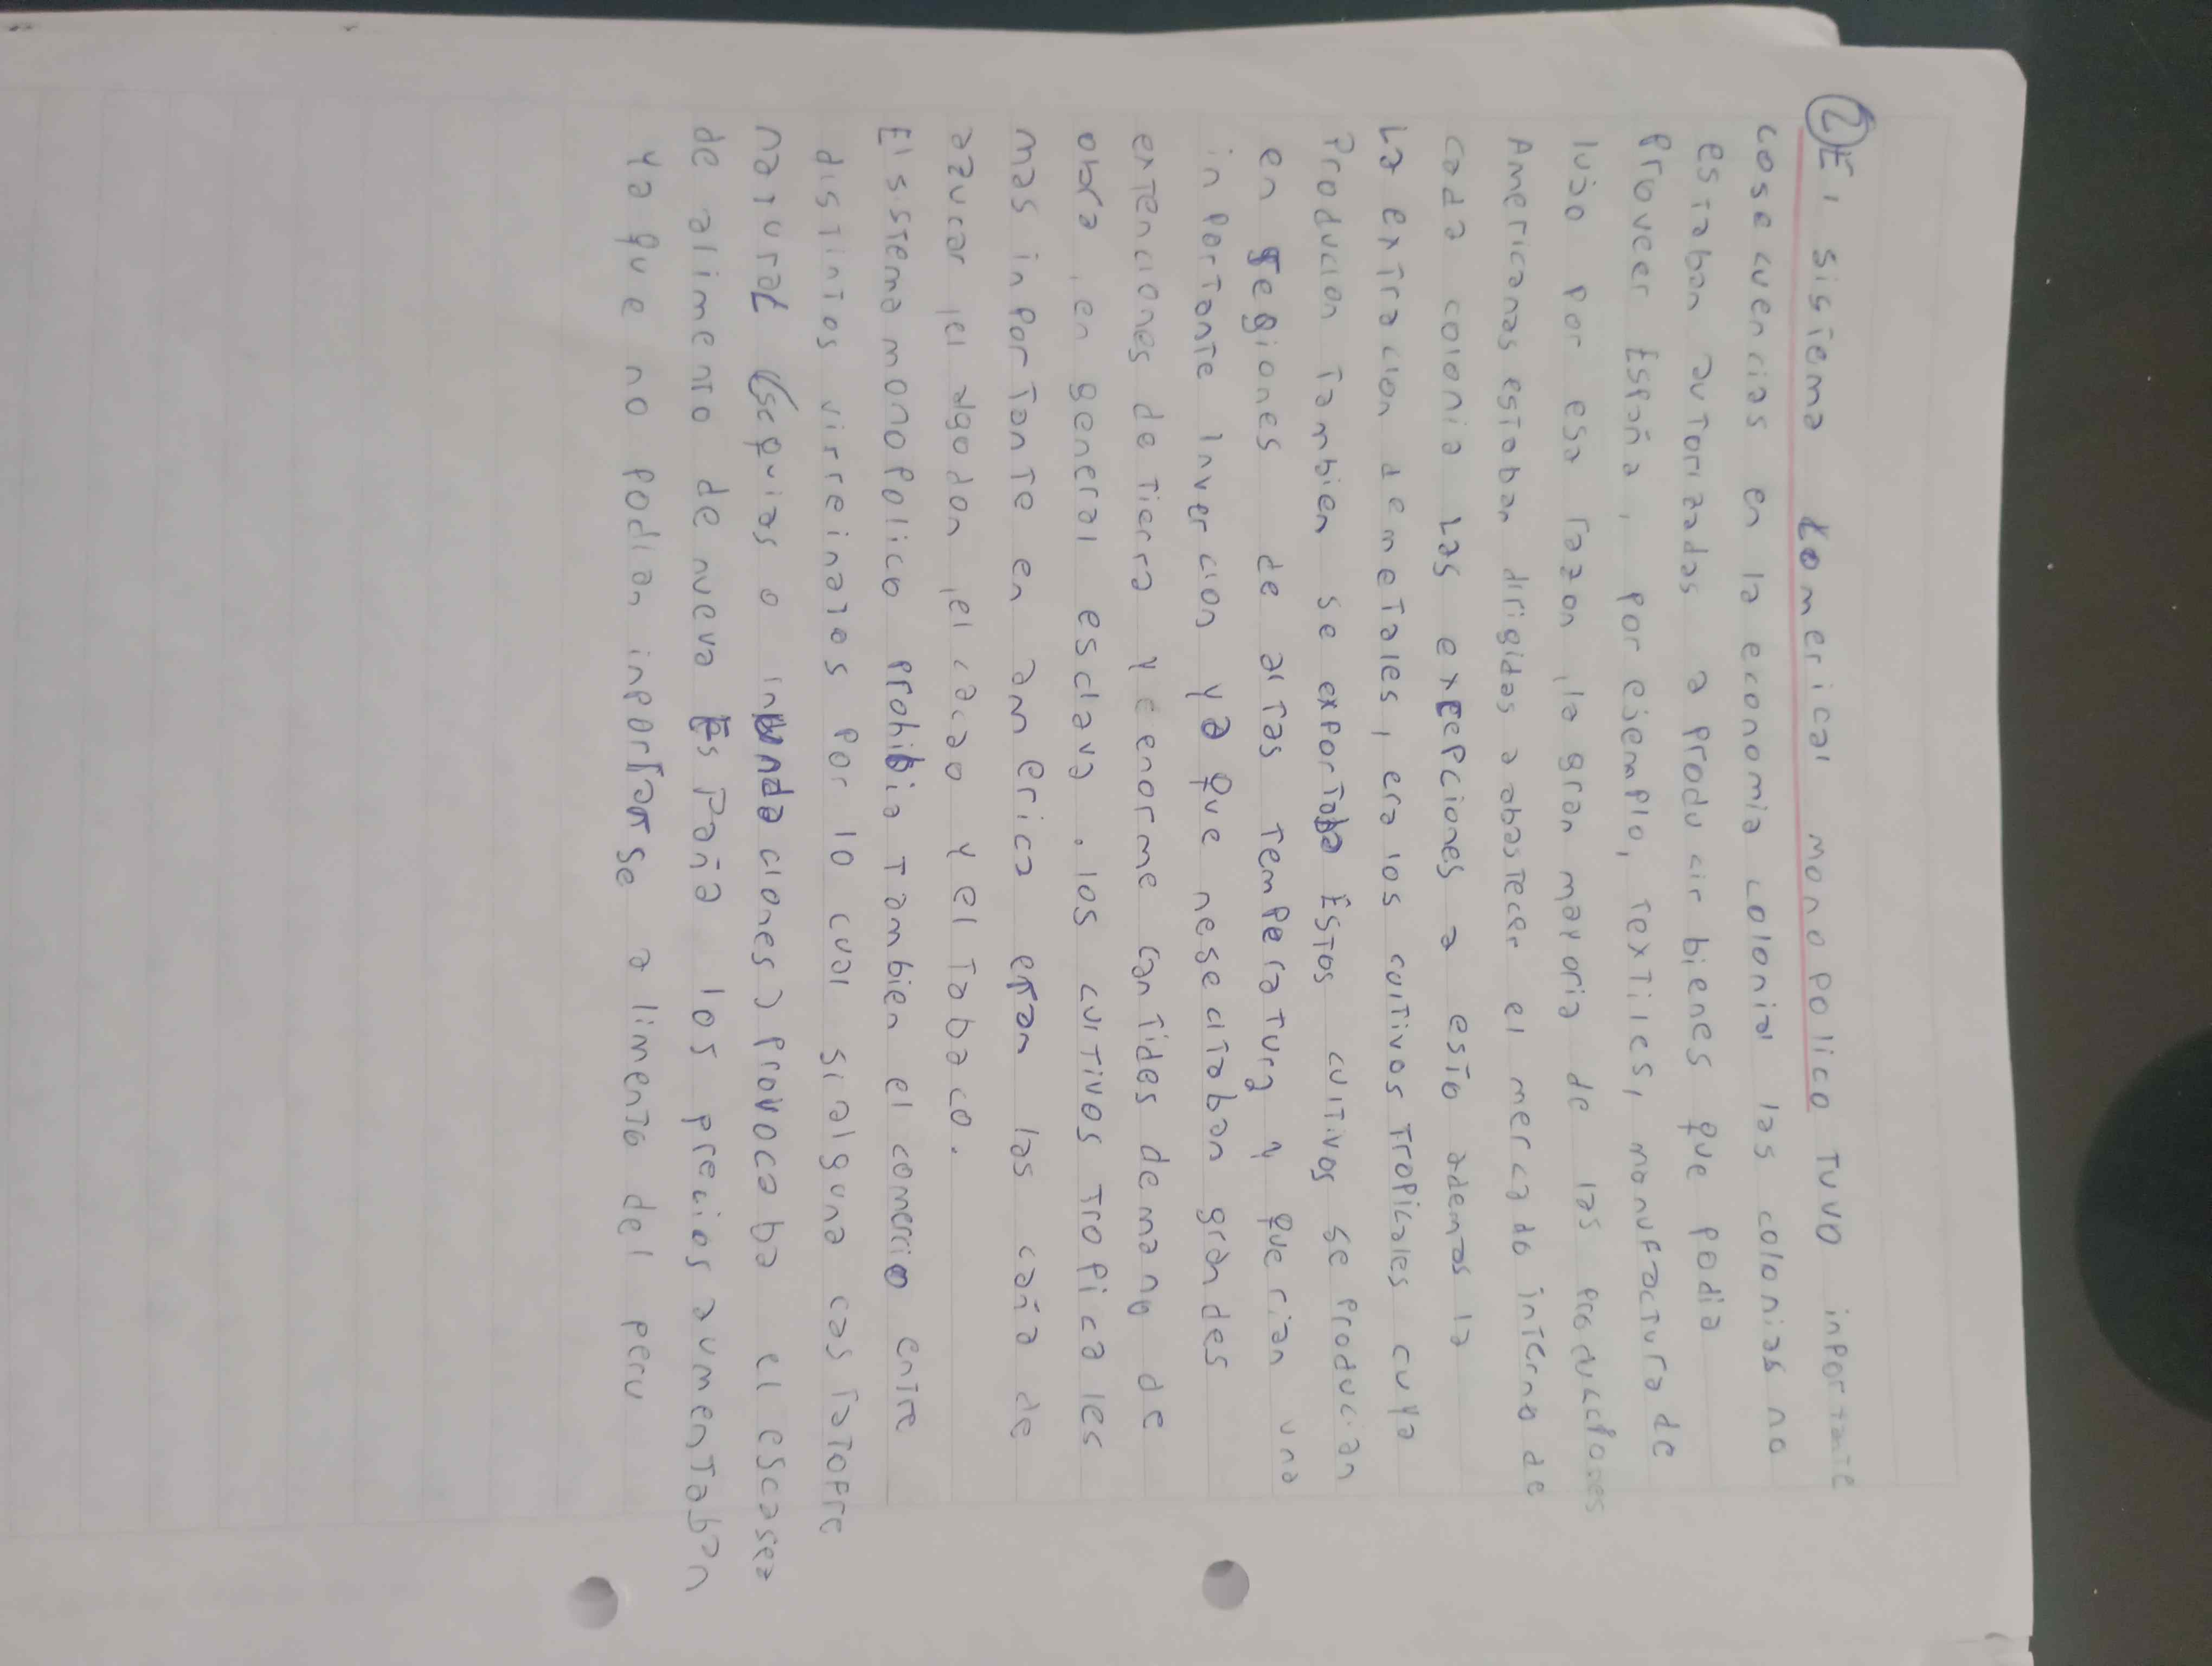 ② El sistema comercial monopolico tuvo inportante
cosecuencias en la economia colonial las colonias no
estaban autorizadas a producir bienes que podia
proveer España, por ejemplo, textiles, manufactura de
lujo por esa razon, la gran mayoria de las producciones
Americanas estaban dirigidas a abastecer el mercado interno de
cada colonia Las exepciones a esto ademas la
La extracion de metales, era los cultivos tropicales cuya
producion tambien se exportaba Estos cultivos se producian
en regiones de altas temperatura y querian una
inportante Invercion ya que nesecitaban grandes
extenciones de tierra y enorme cantides de mano de
obra, en general esclava. los cultivos tropicales
mas inportante en america eran las caña de
azucar, el algodon, el cacao y el tabaco.
El sistema monopolico prohibia tambien el comercio entre
distintos virreinatos por lo cual si alguna castatofre
natural (sequias o inundaciones) provocaba el escasez
de alimento de nueva España los precios aumentaban
ya que no podian inportarse alimento del peru